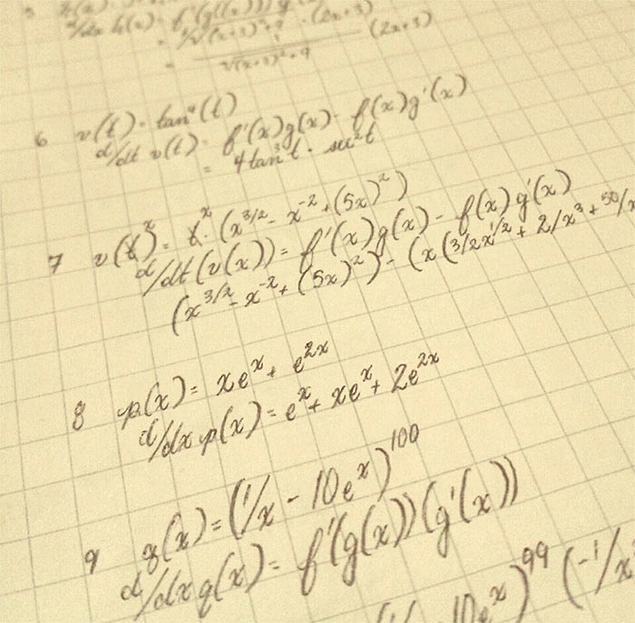 5
(2x+3)
√(x+3)²+9
6 v(t) = tan⁴(t)
d/dt v(t) = f'(x)g(x) - f(x)g'(x)
= 4tan³t · sec²t
7 v(x) = x · (x^3/2 - x^-2 + (5x)²)
d/dt(v(x)) = f'(x)g(x) - f(x)g'(x)
(x^3/2 - x^-2 + (5x)²) - (x(3/2x^1/2 + 2/x³ + 50/x
8 p(x) = xe^x + e^2x
d/dx p(x) = e^x + xe^x + 2e^2x
9 q(x) = (1/x - 10e^x)^100
d/dx q(x) = f'(g(x))(g'(x))
10e^x)^99 (-1/x